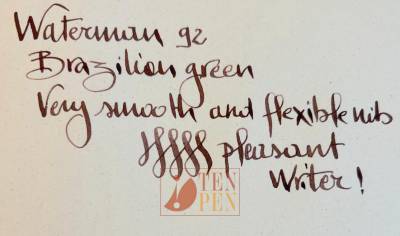 Waterman 92
Brazilian green
Very smooth and flexible nib
pleasant
Writer!
TEN
PEN